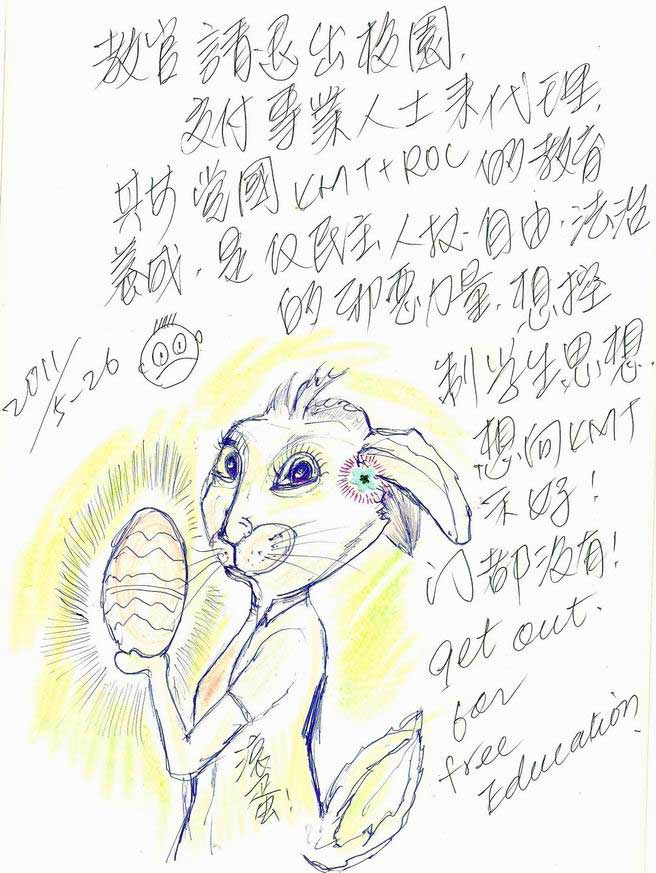 教官請退出校園,
交付專業人士來代理,
其 党國KMT+ROC的教育
養成,是反民主.人权.自由.法治
的邪惡力量,想控
制学生思想.
想向KMT
示好!
门都没有!
get out.
for
free
Education.
2011/5-26
滚蛋!